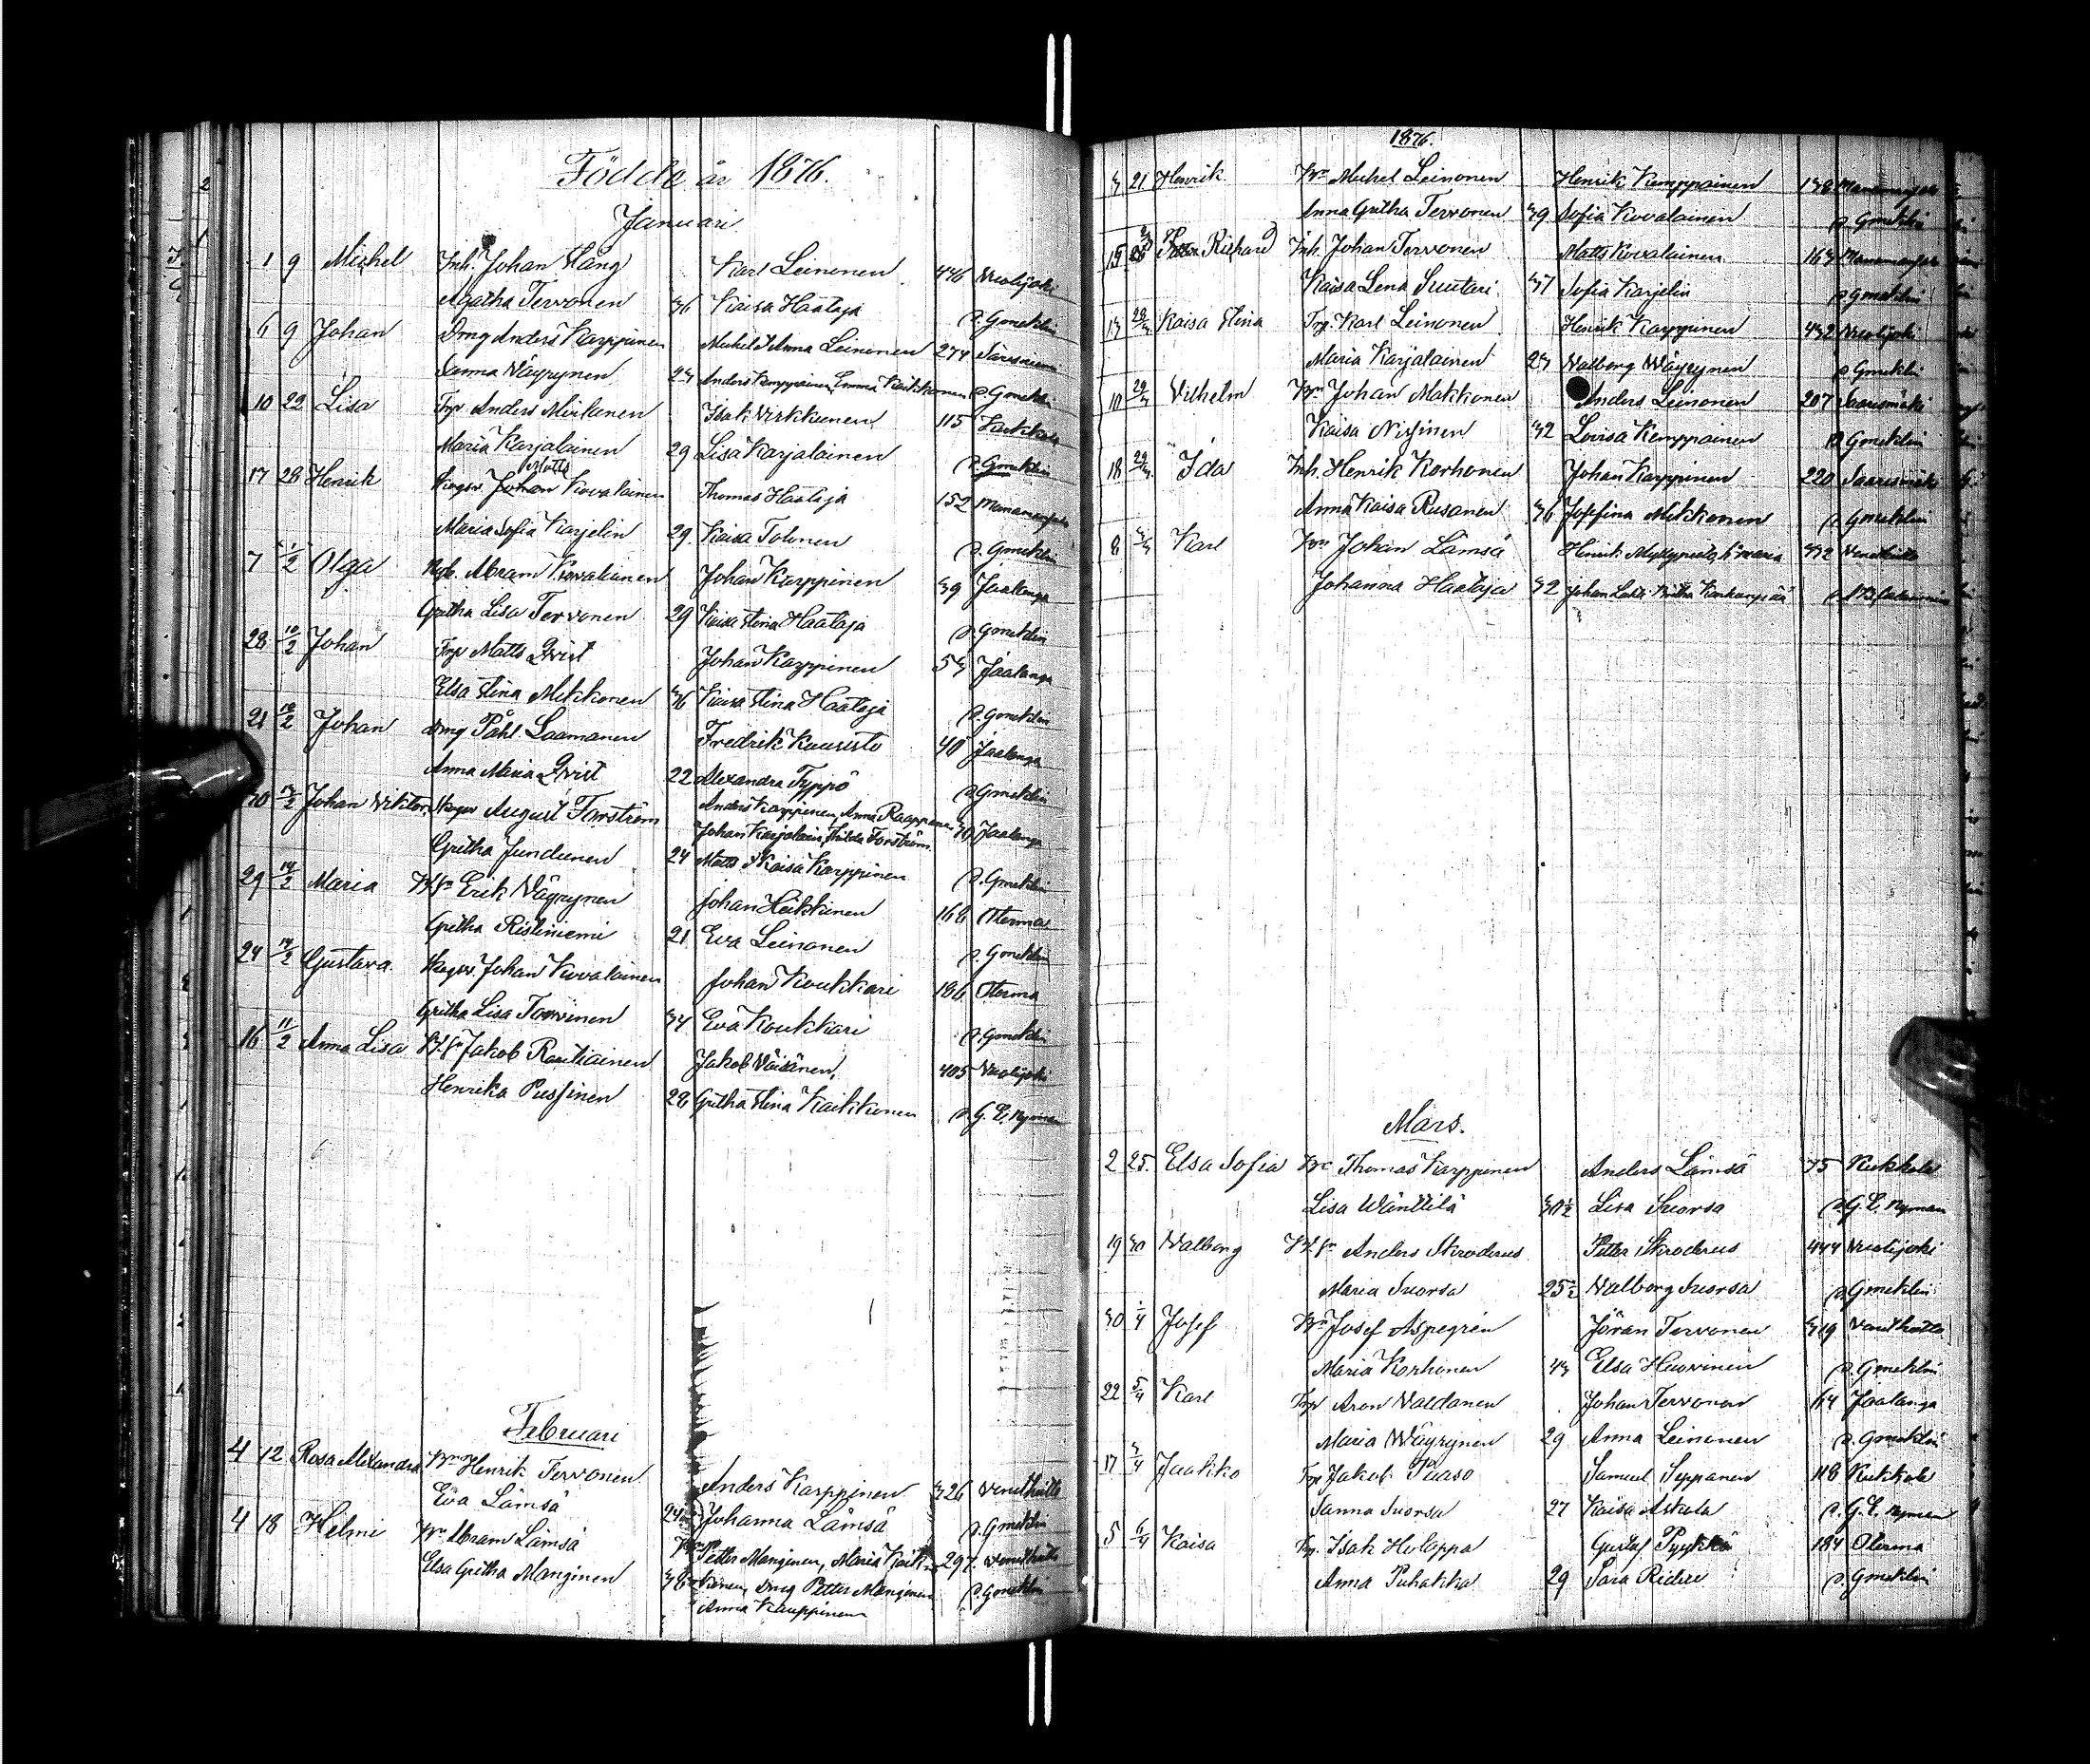 Födde år 1876.
Januari
1 9 Michel Inh. Johan Häng Karl Leinonen 446 Vuolijoki
Agatha Tervonen 36 Kaisa Haataja p. Gmeklin
6 9 Johan Drng Anders Karppinen Michel & Anna Leinonen 274 Säresniemi
Sanna Väyrynen 23 Anders Kemppainen, Emma Kaikkonen p. Gmeklin
10 22 Lisa Trp Anders Mulanen Isak Virkkunen 115 Kukkola
Maria Karjalainen 29 Lisa Karjalainen p. Gmeklin
17 28 Henrik Johan Kovalainen Thomas Haataja 152 Manamansalo
Maria Sofia Karjelin 29. Kaisa Tolonen p. Gmeklin
7 1/2 Olga Abram Kovalainen Johan Karppinen 39 Jaalanga
Gretha Lisa Tervonen 29 Kaisa Stina Haataja p. Gmeklin
28 10/2 Johan Trp Matts Qvist Johan Karppinen 53 Jaalanga
Elsa Stina Mikkonen 36 Kaisa Stina Haataja p. Gmeklin
21 12/2 Johan drng Påhl Laamanen Fredrik Kuusisto 40 Jaalanga
Anna Maria Qvist 22 Alexandra Typpö p. Gmeklin
30 13/2 Johan Viktor August Forström Anders Karppinen, Anna Raappana 30 Jaalanga
Johan Karjalain, Hilda Forström.
Gretha Junttunen 24 Matts & Kaisa Karppinen p. Gmeklin
29 14/2 Maria Erik Väyrynen Johan Heikkinen 168 Oterma
Gretha Ristiniemi 21 Eva Leinonen p. Gmeklin
24 14/2 Gustava. Johan Kovalainen Johan Koukkari 186 Oterma
Gretha Lisa Torvinen 34 Eva Koukkari p. Gmeklin
16 11/2 Anna Lisa Jakob Rautiainen Jakob Väisänen, 405 Vuolijoki
Henrika Pussinen 28 Gretha Stina Kaikkonen p. G. E. Nyman
Februari
4 12 Rosa Alexandra Henrik Tervonen Anders Karppinen 326 Venetheitto
Eva Lämsä 24 Johanna Lämsä p. Gmeklin
4 18 Helmi Abram Lämsä Petter Manginen, Maria Kaik- 297. Venetheitto
Elsa Gretha Manginen 38 konen, drng Petter Manginen p. Gmeklin
Anna Kauppinen
1876.
3 21 Henrik Michel Leinonen Henrik Kemppainen 138 Manamansalo
Anna Gretha Tervonen 39 Sofia Kovalainen p. Gmeklin
15 Richard Inh. Johan Tervonen Matts Kovalainen 163 Manamansalo
Kaisa Lena Suutari 37 Sofia Karjelin p. Gmeklin
13 28/3 Kaisa Stina Trp. Karl Leinonen Henrik Karppinen 432 Vuolijoki
Maria Karjalainen 23 Valborg Wäyrynen p. Gmeklin
10 29/3 Vilhelm Johan Makkonen Anders Leinonen 207 Saaresmäki
Kaisa Nissinen 32 Lovisa Kemppainen p. Gmeklin
18 29/3. Ida Inh. Henrik Korhonen Johan Karppinen 220 Saaresmäki
Anna Kaisa Rusanen 36 Josefina Mikkonen p. Gmeklin
8 3/3 Karl Johan Lämsä Henrik Myllyniemi, h. maria 332 Venetheitto
Johanna Haataja 32 Johan Lahti
Mars.
2 25. Elsa Sofia Thomas Karppinen Anders Lämsä 75 Kukkola
Lisa Wänttilä 30 1/2 Lisa Suorsa p. G. E. Nyman
19 30 Valborg Anders Skroderus Petter Skroderus 444 Vuolijoki
Maria Suorsa 25 1/2 Valborg Suorsa p. Gmeklin
30 1/4 Josef Josef Aspegrén Jöran Tervonen 319 Venetheitto
Maria Korhonen 43 Elsa Huovinen p. Gmeklin
22 5/4 Karl Trp Aron Valtanen Johan Tervonen 64 Jaalanga
Maria Wäyrynen 29 Anna Leinonen p. Gmeklin
17 3/4 Jaakko Trp Jakob Paaso Samuel Seppänen 118 Kukkola
Sanna Suorsa 27 Kaisa Askola p. G. E. Nyman
5 6/4 Kaisa Trp. Isak Holappa Gustaf Pyykkö 184 Oterma
Anna Puhakka 29 Sara Ridell p. Gmeklin